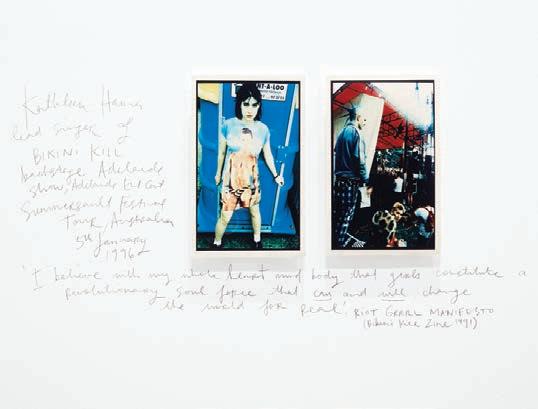 Kathleen Hanna
lead singer of
BIKINI KILL
backstage Adelaide
show, Adelaide
Summersault Festival
Tour, Australia
5th January
1996
NT-A-LOO
'I believe with my whole heart mind body that girls constitute a
revolutionary soul force that can and will change
the world for real'. RIOT GRRRL MANIFESTO
(Bikini Kill Zine 1991)